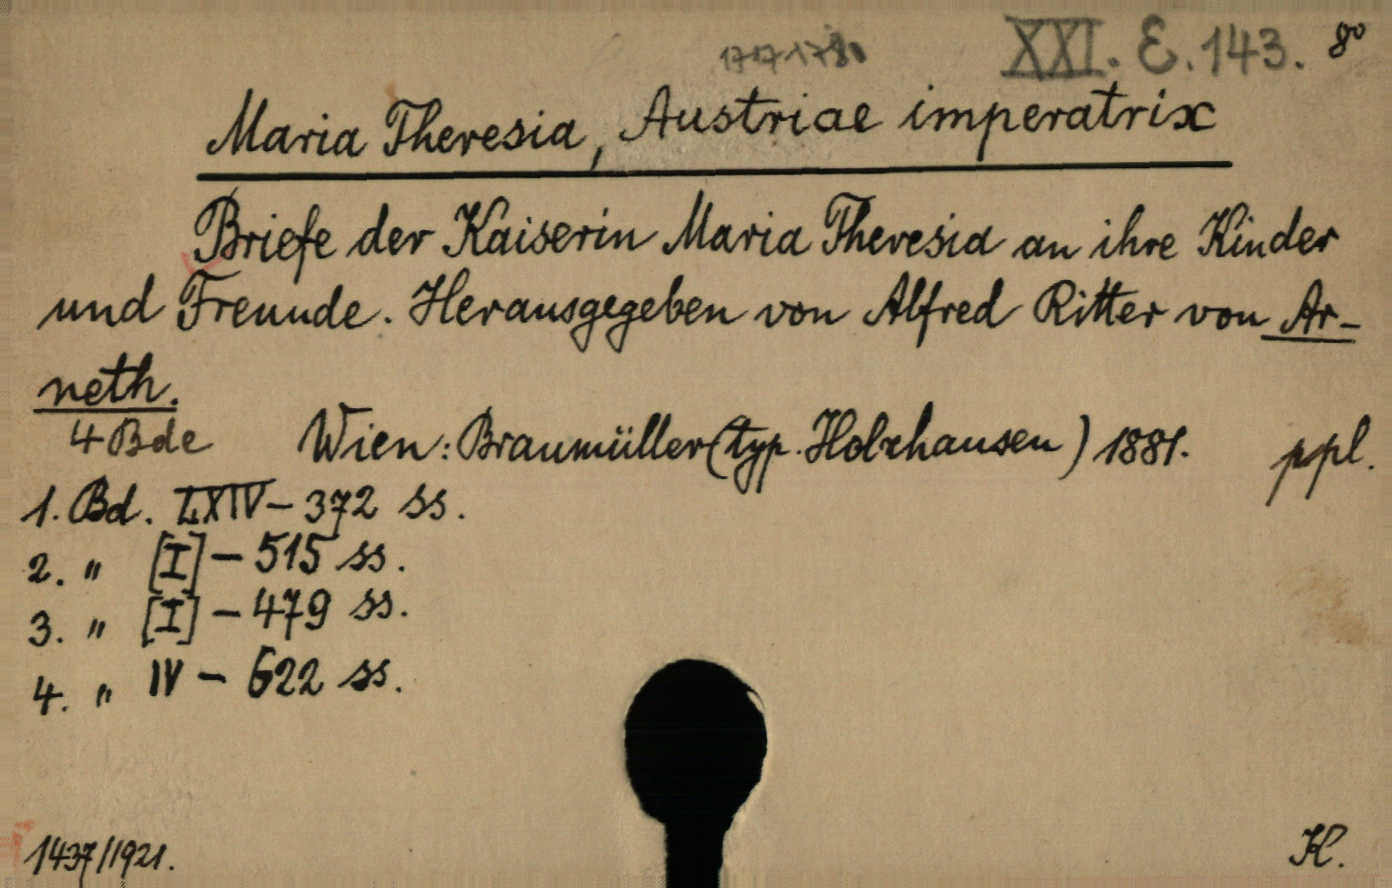 1717-1780 XXI. E. 143. 8°
Maria Theresia, Austriae imperatrix
Briefe der Kaiserin Maria Theresia an ihre Kinder
und Freunde. Herausgegeben von Alfred Ritter von Ar-
neth.
4 Bde Wien: Braumüller (typ. Holzhausen) 1881. ppl.
1. Bd. LXIV – 372 ss.
2. " [I] – 515 ss.
3. " [I] – 479 ss.
4. " IV – 622 ss.
1437/1921. K.